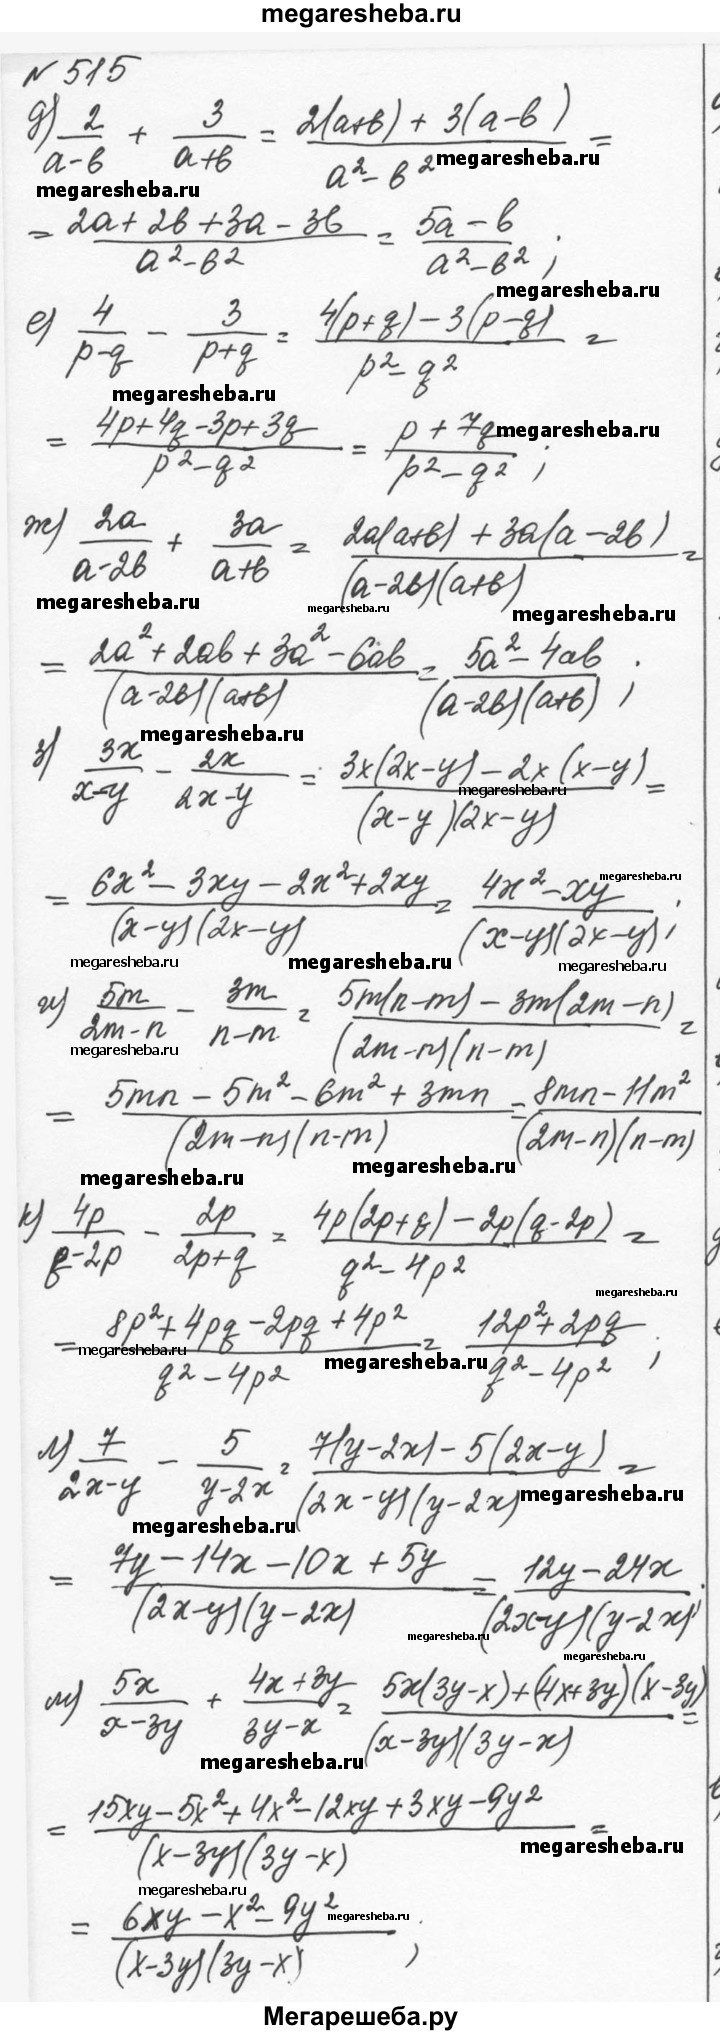 megaresheba.ru
№ 515
д) 2/(a-в) + 3/(a+в) = (2(a+в) + 3(a-в))/(a²-в²) =
megaresheba.ru
megaresheba.ru
= (2a + 2в + 3a - 3в)/(a²-в²) = (5a-в)/(a²-в²);
megaresheba.ru
е) 4/(p-q) - 3/(p+q) = (4(p+q) - 3(p-q))/(p²-q²) =
megaresheba.ru
= (4p+4q-3p+3q)/(p²-q²) = (p+7q)/(p²-q²);
megaresheba.ru
ж) 2a/(a-2в) + 3a/(a+в) = (2a(a+в) + 3a(a-2в))/((a-2в)(a+в)) =
megaresheba.ru
megaresheba.ru
megaresheba.ru
= (2a²+2aв+3a²-6aв)/((a-2в)(a+в)) = (5a²-4aв)/((a-2в)(a+в));
megaresheba.ru
з) 3x/(x-y) - 2x/(2x-y) = (3x(2x-y) - 2x(x-y))/((x-y)(2x-y)) =
megaresheba.ru
megaresheba.ru
= (6x²-3xy-2x²+2xy)/((x-y)(2x-y)) = (4x²-xy)/((x-y)(2x-y));
megaresheba.ru
megaresheba.ru
megaresheba.ru
и) 5m/(2m-n) - 3m/(n-m) = (5m(n-m) - 3m(2m-n))/((2m-n)(n-m)) =
megaresheba.ru
= (5mn-5m²-6m²+3mn)/((2m-n)(n-m)) = (8mn-11m²)/((2m-n)(n-m))
megaresheba.ru
megaresheba.ru
к) 4p/(q-2p) - 2p/(2p+q) = (4p(2p+q) - 2p(q-2p))/(q²-4p²) =
megaresheba.ru
= (8p²+4pq-2pq+4p²)/(q²-4p²) = (12p²+2pq)/(q²-4p²);
megaresheba.ru
megaresheba.ru
л) 7/(2x-y) - 5/(y-2x) = (7(y-2x) - 5(2x-y))/((2x-y)(y-2x)) =
megaresheba.ru
megaresheba.ru
= (7y-14x-10x+5y)/((2x-y)(y-2x)) = (12y-24x)/((2x-y)(y-2x));
megaresheba.ru
megaresheba.ru
м) 5x/(x-3y) + (4x+3y)/(3y-x) = (5x(3y-x)+(4x+3y)(x-3y))/((x-3y)(3y-x)) =
megaresheba.ru
= (15xy-5x²+4x²-12xy+3xy-9y²)/((x-3y)(3y-x)) =
megaresheba.ru
megaresheba.ru
= (6xy-x²-9y²)/((x-3y)(3y-x));
megaresheba.ru
Мегарешеба.ру